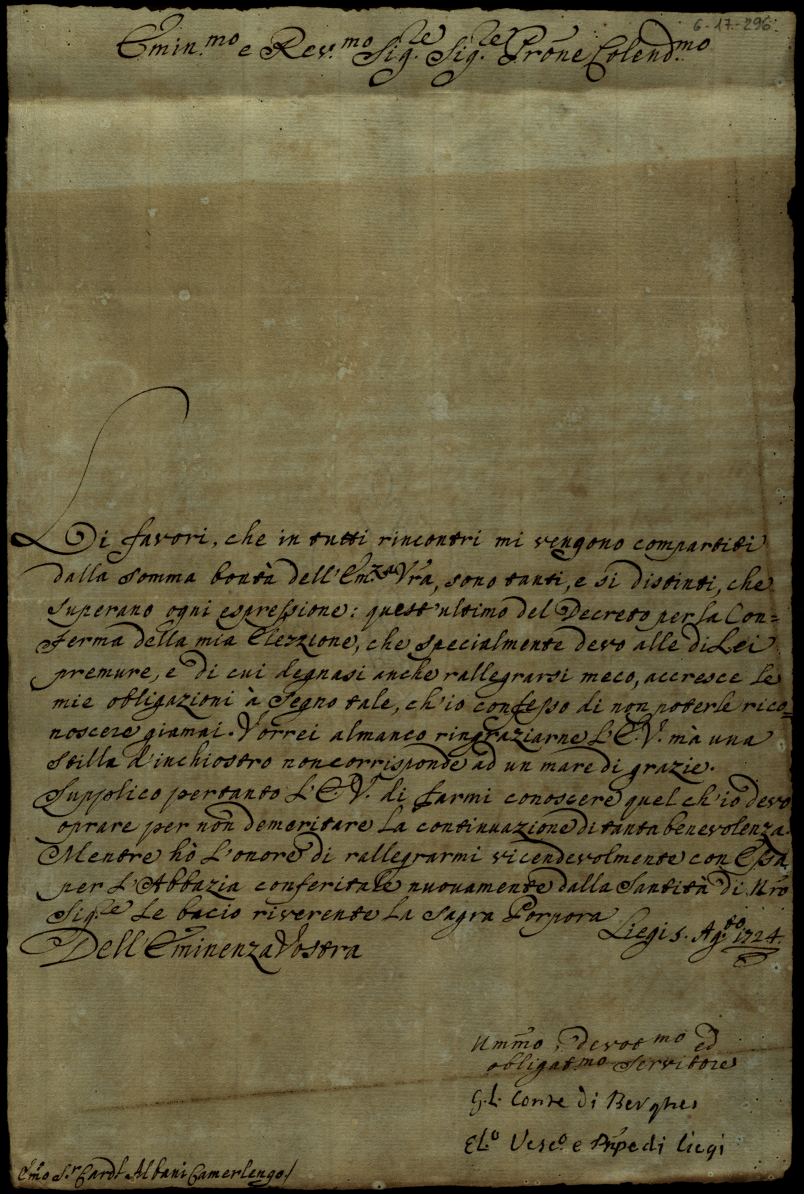 6-17-296.
Emin.mo e Rev.mo Sig.re Sig.re Prone Colend.mo
Di favori, che in tutti rincontri mi vengono compartiti
dalla somma bontà dell'Em.za Vra, sono tanti, e si distinti, che
superano ogni espressione: quest'ultimo del Decreto per la Con=
ferma della mia Elezzione, che specialmente devo alle di Lei
premure, e di cui degnasi anche rallegrarsi meco, accresce le
mie obligazioni à segno tale, ch'io confesso di non poterle rico=
noscere giamai. Vorrei almanco ringraziarne L'E.V. mà una
stilla d'inchiostro non corrisponde ad un mare di grazie.
Supplico pertanto L'E.V. di farmi conoscere quel ch'io devo
oprare per non demeritare la continuazione di tanta benevolenza.
Mentre hò L'onore di rallegrarmi vicendevolmente con Essa
per L'Abbazia conferitale nuovamente dalla Santità di Nro
Sig.re Le bacio riverente La Sagra Porpora
Dell'Eminenza Vostra
Liegi 5. Ag.to 1724.
Ummo, Devot.mo ed
obligat.mo Servitore
G.L. Conte di Berghes
El.o Vesc.o e Prpe di Liegi
Emo S.r Card.l Albani Camerlengo/